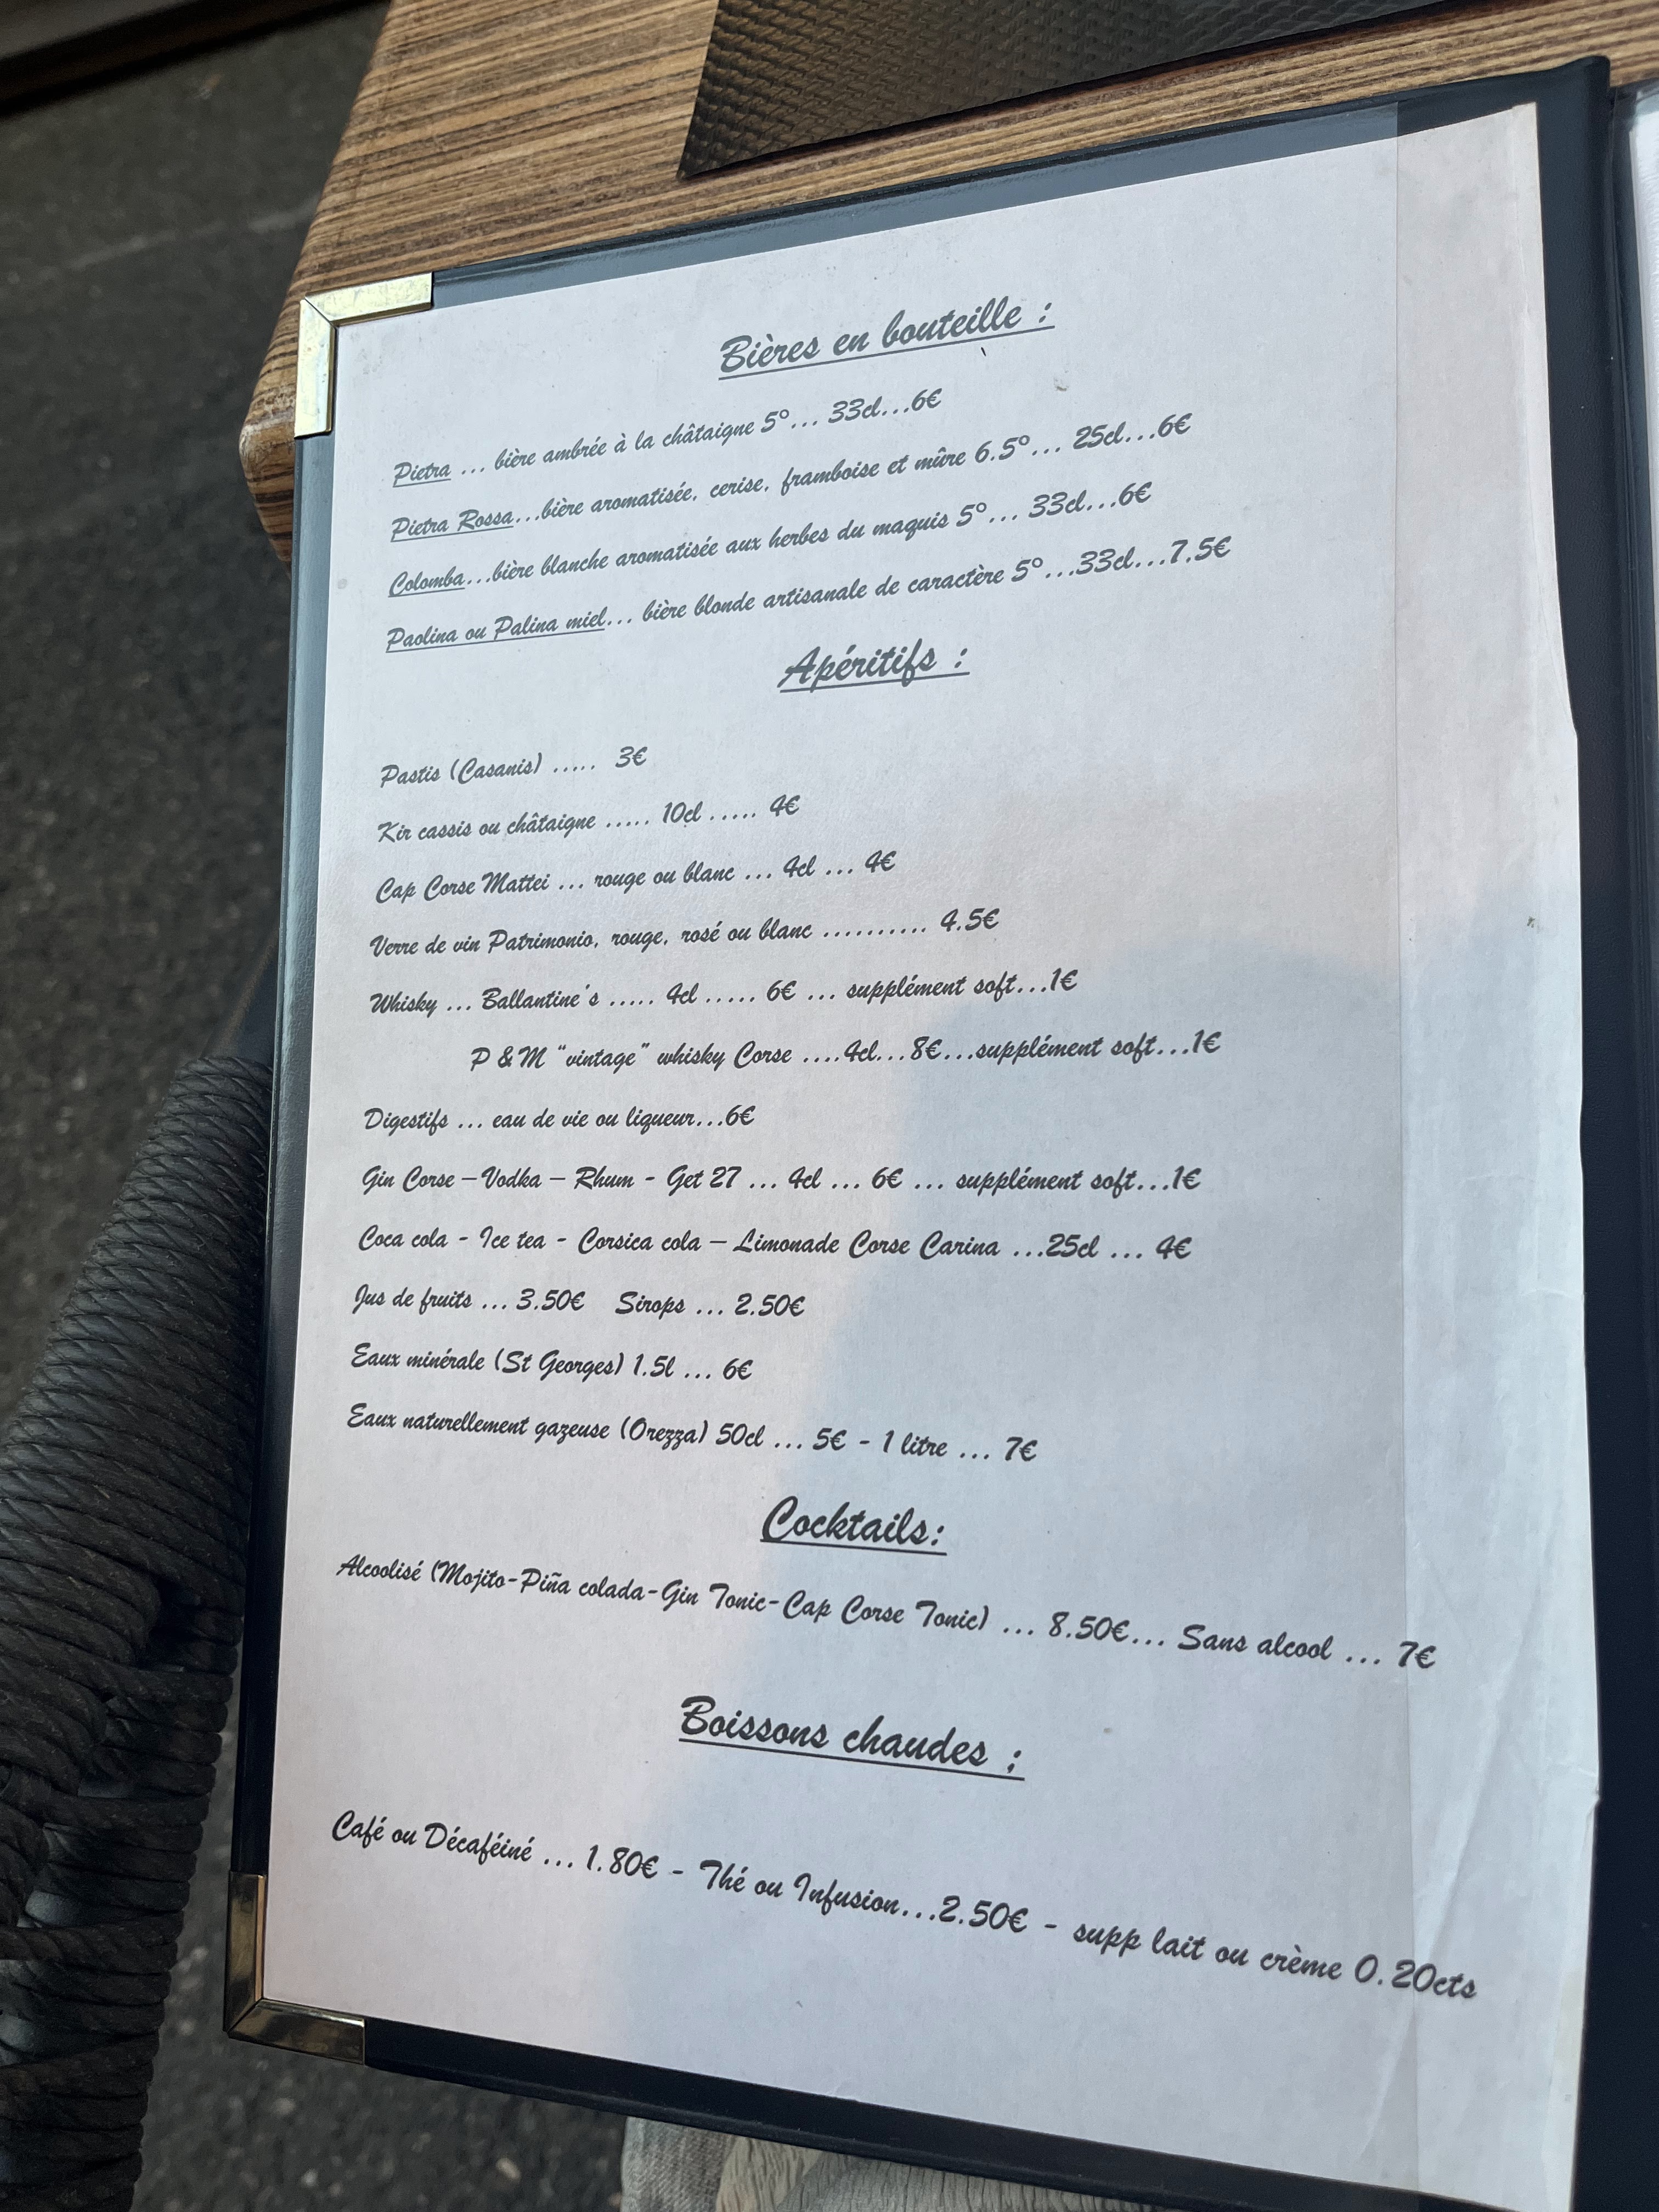 Bières en bouteille :
Pietra ... bière ambrée à la châtaigne 5°... 33cl...6€
Pietra Rossa...bière aromatisée, cerise, framboise et mûre 6.5°... 25cl...6€
Colomba...bière blanche aromatisée aux herbes du maquis 5°... 33cl...6€
Paolina ou Palina miel... bière blonde artisanale de caractère 5°...33cl...7.5€
Apéritifs :
Pastis (Casanis) ..... 3€
Kir cassis ou châtaigne ..... 10cl ..... 4€
Cap Corse Mattei ... rouge ou blanc ... 4cl ... 4€
Verre de vin Patrimonio, rouge, rosé ou blanc .......... 4.5€
Whisky ... Ballantine's ..... 4cl ..... 6€ ... supplément soft...1€
P & M "vintage" whisky Corse ....4cl...8€...supplément soft...1€
Digestifs ... eau de vie ou liqueur...6€
Gin Corse – Vodka – Rhum - Get 27 ... 4cl ... 6€ ... supplément soft...1€
Coca cola - Ice tea - Corsica cola – Limonade Corse Carina ...25cl ... 4€
Jus de fruits ... 3.50€ Sirops ... 2.50€
Eaux minérale (St Georges) 1.5l ... 6€
Eaux naturellement gazeuse (Orezza) 50cl ... 5€ - 1 litre ... 7€
Cocktails:
Alcoolisé (Mojito-Piña colada-Gin Tonic-Cap Corse Tonic) ... 8.50€... Sans alcool ... 7€
Boissons chaudes :
Café ou Décaféiné ... 1.80€ - Thé ou Infusion...2.50€ - supp lait ou crème 0.20cts